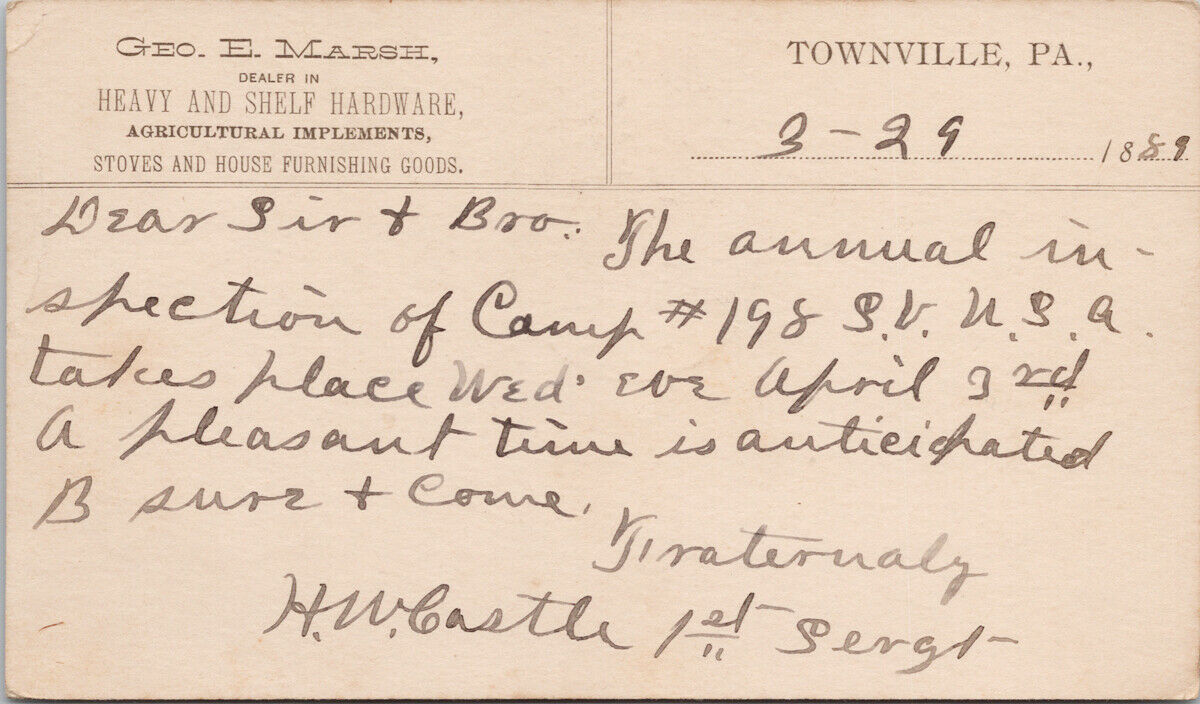 GEO. E. MARSH,
DEALER IN
HEAVY AND SHELF HARDWARE,
AGRICULTURAL IMPLEMENTS,
STOVES AND HOUSE FURNISHING GOODS.
TOWNVILLE, PA.,
3-29 1889
Dear Sir & Bro. The annual in-
spection of Camp #198 S.V. U.S.A.
takes place Wed. eve April 3rd
A pleasant time is anticipated
B sure & Come.
Fraternaly
H.W. Castle 1st Sergt